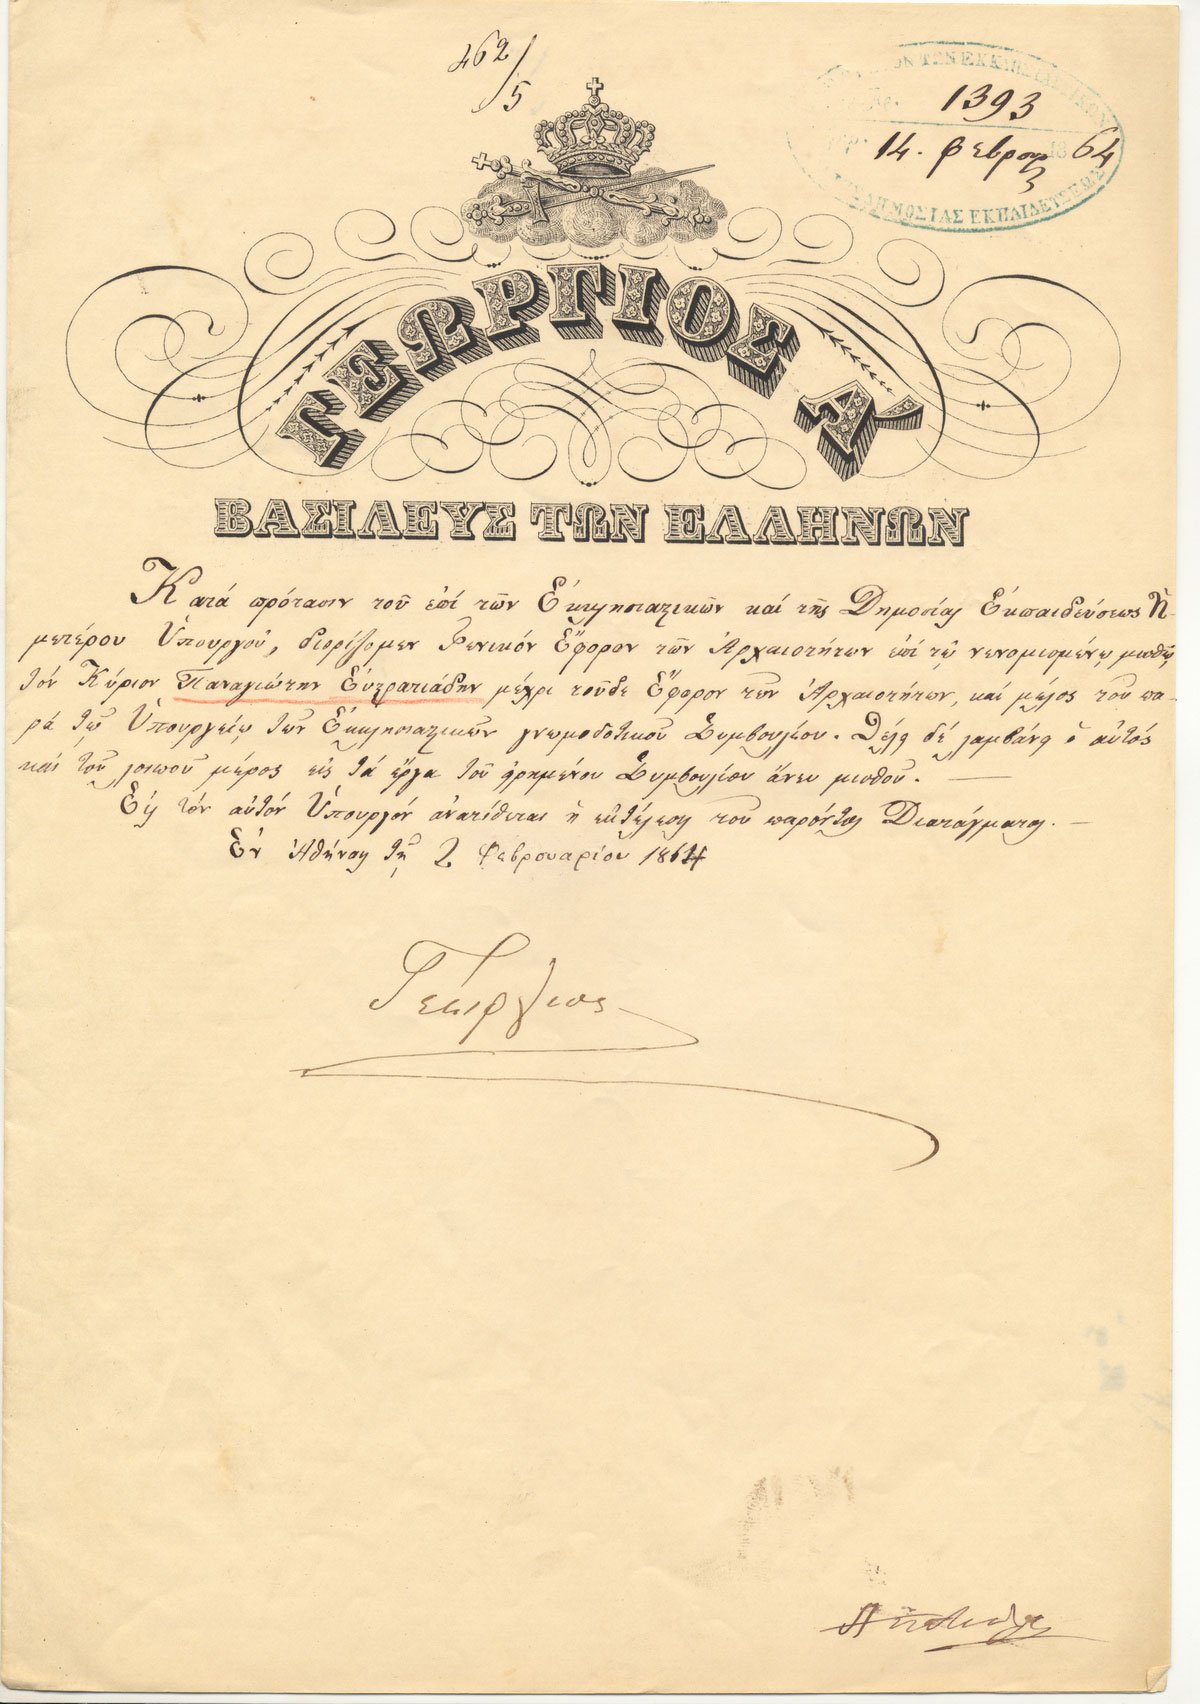 462/5
ΤΩΝ ΕΚΚΛΗΣΙΑΣΤΙΚΩΝ
1393
14. φεβρουαρ 1864
ΔΗΜΟΣΙΑΣ ΕΚΠΑΙΔΕΥΣΕΩΣ
ΓΕΩΡΓΙΟΣ Α
ΒΑΣΙΛΕΥΣ ΤΩΝ ΕΛΛΗΝΩΝ
Κατά πρότασιν τοῦ ἐπί τῶν Ἐκκλησιαστικῶν καί τῆς Δημοσίας Ἐκπαιδεύσεως Ἡ-
μετέρου Ὑπουργοῦ, διορίζομεν Γενικόν Ἔφορον τῶν Ἀρχαιοτήτων ἐπί τῷ νενομισμένῳ μισθῷ
τόν Κύριον Παναγιώτην Εὐστρατιάδην μέχρι τοῦδε Ἔφορον τῶν Ἀρχαιοτήτων, καί μέλος τοῦ πα-
ρά τῷ Ὑπουργείῳ τῶν Ἐκκλησιαστικῶν γνωμοδοτικοῦ Συμβουλίου. Θέλει δέ λαμβάνει ὁ αὐτός
καί τοῦ λοιποῦ μέρος εἰς τά ἔργα τοῦ εἰρημένου Συμβουλίου ἄνευ μισθοῦ. —
Εἰς τόν αὐτόν Ὑπουργόν ἀνατίθεται ἡ ἐκτέλεσις τοῦ παρόντος Διατάγματος. —
Ἐν Ἀθήναις τῇ 2 Φεβρουαρίου 1864
Γεώργιος